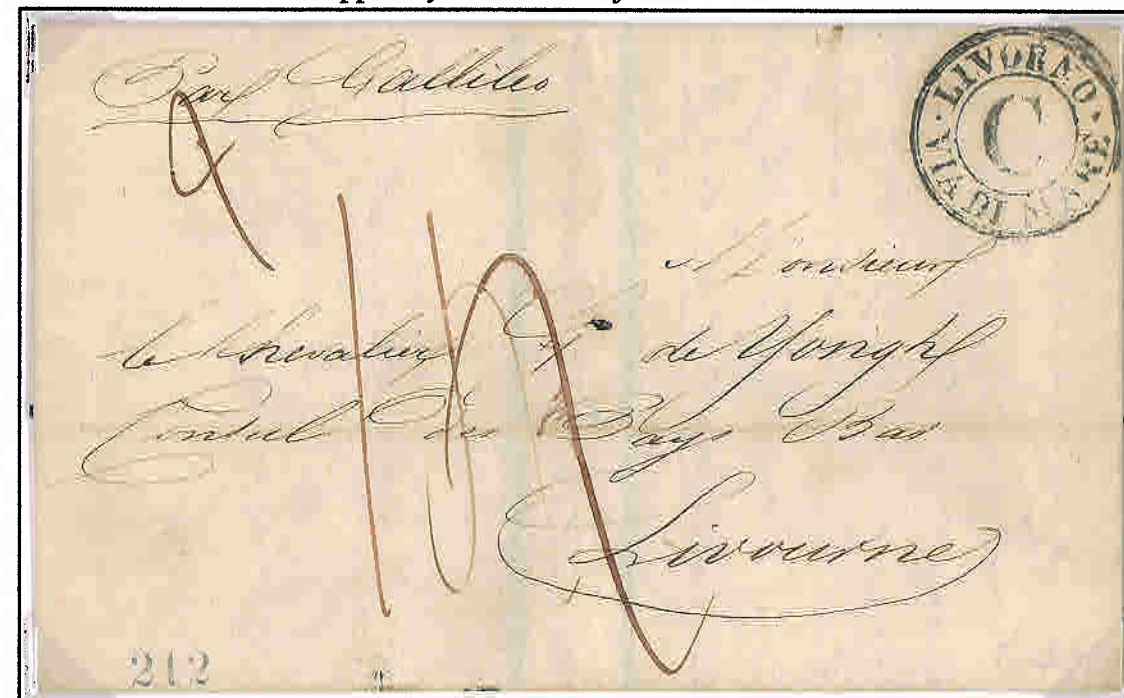 Par Gallileo
LIVORNO · VIA DI MARE
C
Monsieur
le Chevalier de Yongh
Consul des Pays Bas
Livourne
212